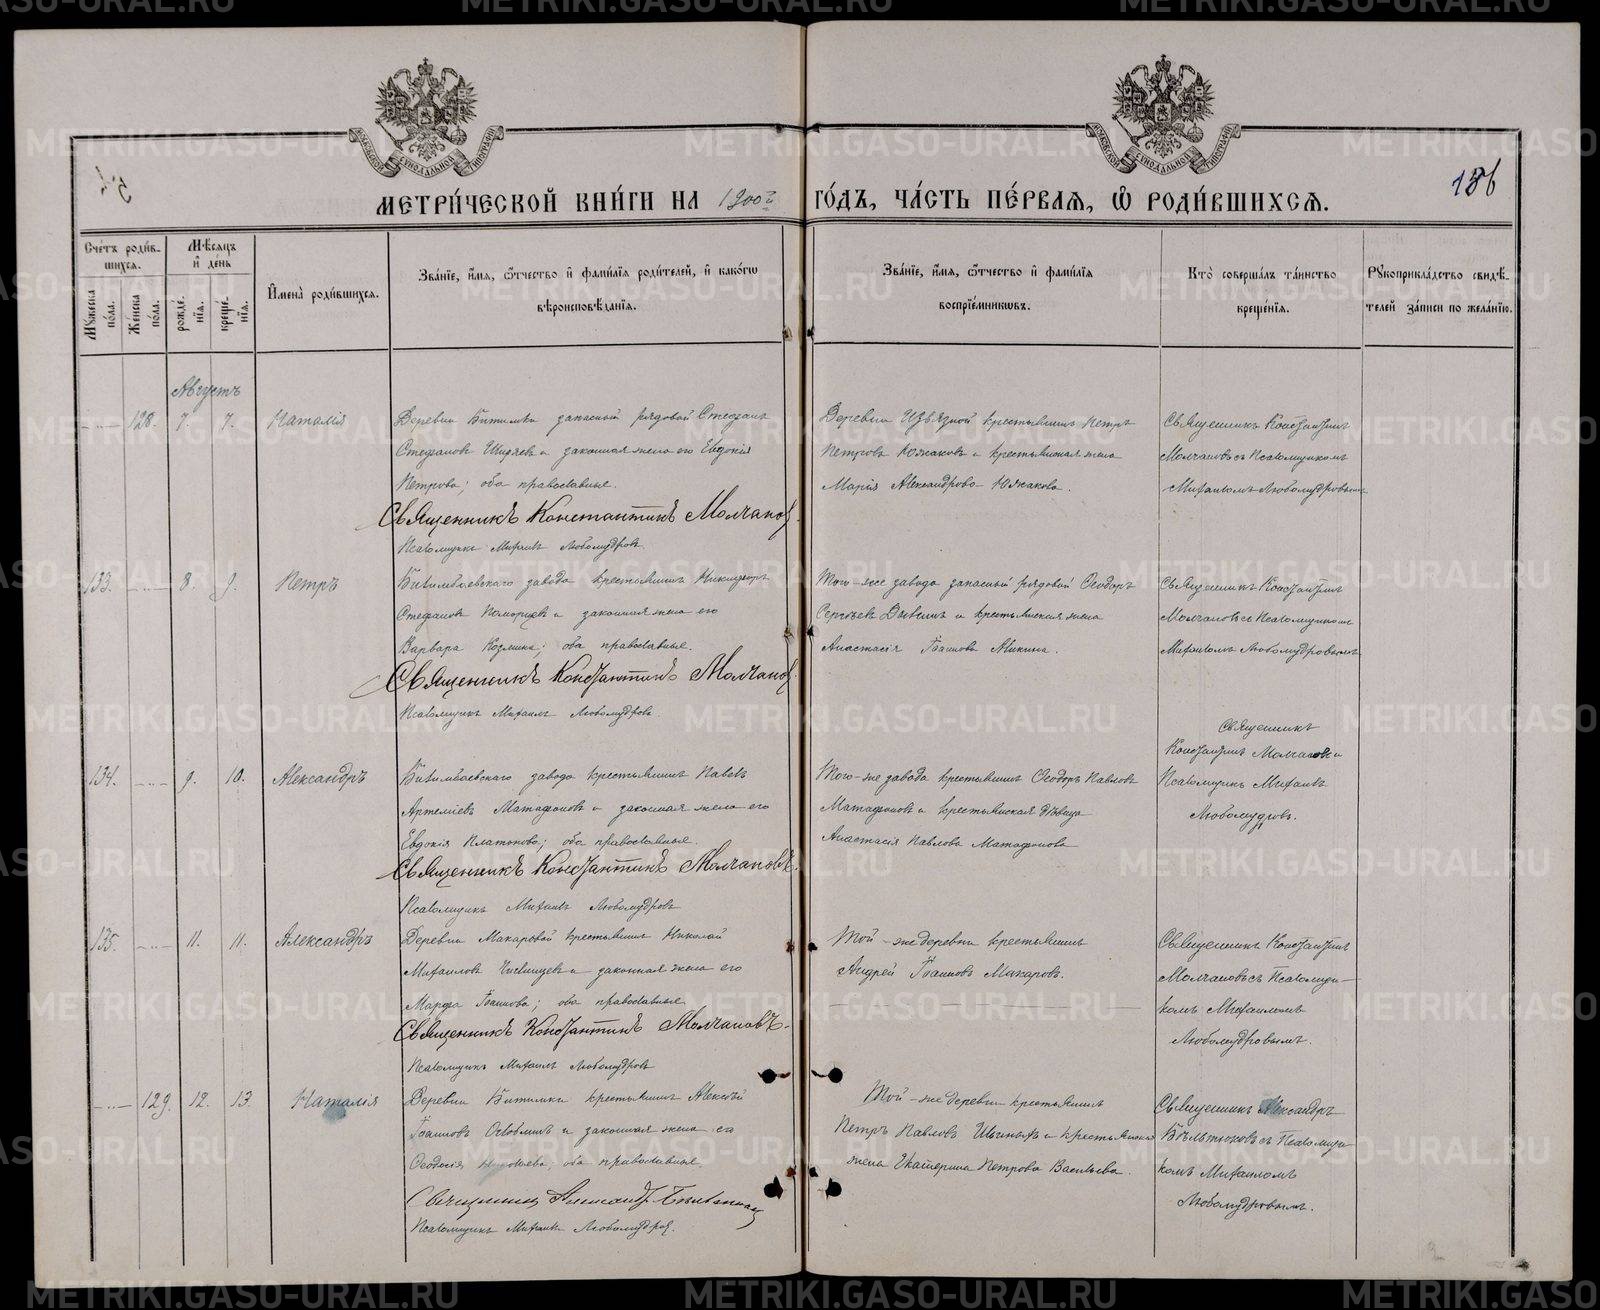 МЕТРИ́ЧЕСКОЙ КНИ́ГИ НА 1900й ГО́ДЪ, ЧА́СТЬ ПЕ́РВАѦ, Ѽ РОДИ́ВШИХСѦ.
136
Сче́тъ роди́в-
шихсѧ.
Мѣ́сѧцъ
и҆ де́нь
Мꙋ́жеска по́ла.
Же́нска по́ла.
рожде́-
нїѧ.
креще́-
нїѧ.
И҆мена̀ роди́вшихсѧ.
Зва́нїе, и҆́мѧ, ѻ҆́тчество и҆ фами́лїѧ роди́телей, и҆ како́гѡ
вѣроисповѣ́данїѧ.
Зва́нїе, и҆́мѧ, ѻ҆́тчество и҆ фами́лїѧ
воспрїе́мникѡвъ.
Кто̀ соверша́лъ та́инство
креще́нїѧ.
Рꙋкоприкла́дство свидѣ́-
телей за́писи по жела́нїю.
Августъ
128. 7. 7. Наталія
Деревни Битимки запасный рядовой Стефанъ
Стефановъ Ширяевъ и законная жена его Евдокія
Петрова; оба православные.
Священникъ Константинъ Молчановъ.
Псаломщикъ Михаилъ Любомудровъ.
Петръ
Петровъ Южаковъ и крестьянская жена
Марія Александрова Южакова.
Священникъ Константинъ
Молчановъ съ Псаломщикомъ
Михаиломъ Любомудровымъ
133. 8. 9. Петръ
Билимбаевскаго завода крестьянинъ Никифоръ
Стефановъ и законная жена его
Варвара Козмина; оба православные.
Священникъ Константинъ Молчановъ.
Псаломщикъ Михаилъ Любомудровъ.
Того-же завода запасный рядовой Ѳеодоръ
Сергѣевъ и крестьянская жена
Анастасія Іоаннова
Священникъ Константинъ
Молчановъ съ Псаломщикомъ
Михаиломъ Любомудровымъ
134. 9. 10. Александръ
Билимбаевскаго завода крестьянинъ Павелъ
Артеміевъ Матафоновъ и законная жена его
Евдокія Платонова; оба православные.
Священникъ Константинъ Молчановъ.
Псаломщикъ Михаилъ Любомудровъ
Того-же завода крестьянинъ Ѳеодоръ Павловъ
Матафоновъ и крестьянская дѣвица
Анастасія Павлова Матафонова
Священникъ
Константинъ Молчановъ и
Псаломщикъ Михаилъ
Любомудровъ.
135. 11. 11. Александръ
Деревни Макаровой крестьянинъ Николай
Михаиловъ и законная жена его
Марфа Іоаннова; оба православные.
Священникъ Константинъ Молчановъ.
Псаломщикъ Михаилъ Любомудровъ
Той-же деревни крестьянинъ
Андрей Іоанновъ Макаровъ.
Священникъ Константинъ
Молчановъ съ Псаломщи-
комъ Михаиломъ
Любомудровымъ.
129. 12. 13. Наталія
Деревни Битимки крестьянинъ Алексѣй
Іоанновъ и законная жена его
Ѳеодосія оба православные.
Священникъ Александръ
Псаломщикъ Михаилъ Любомудровъ.
Той-же деревни крестьянинъ
Петръ Павловъ и крестьянская
жена Екатерина Петрова Васильева.
Священникъ Александръ
съ Псаломщи-
комъ Михаиломъ
Любомудровымъ.
METRIKI.GASO-URAL.RU